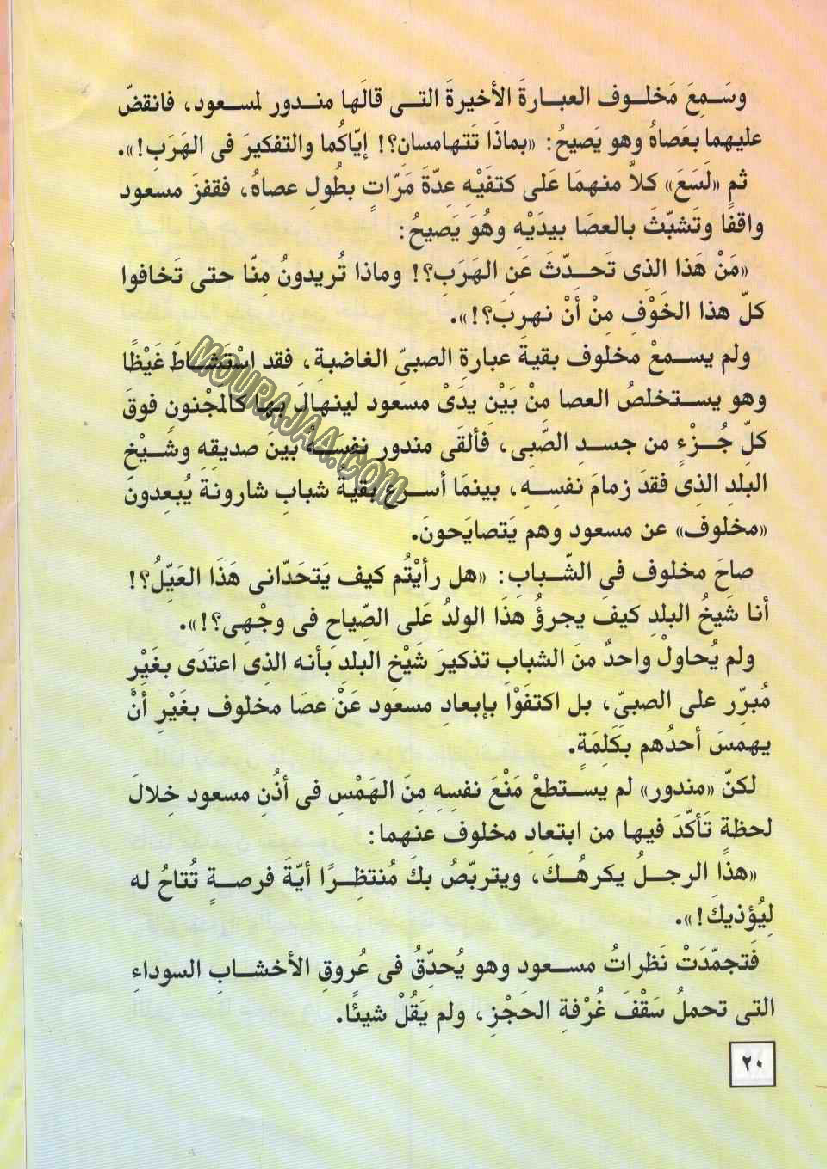 وسَمِعَ مَخلوف العبارةَ الأخيرةَ التى قالَها مندور لمسعود، فانقضّ
عليهما بعَصاهُ وهو يَصيحُ: «بماذَا تَتهامسان؟! إيّاكُما والتفكيرَ فى الهَرَبِ!».
ثم «لَسَعَ» كلاَّ منهمَا عَلى كتفَيْهِ عِدّةَ مَرّاتٍ بطُولِ عصاهُ، فقفزَ مسعود
واقفًا وتَشبّثَ بالعصَا بيدَيْهِ وهُوَ يَصيحُ:
«مَنْ هَذا الذِى تَحدّثَ عَنِ الهَرَبِ؟! وماذا تُريدونُ مِنّا حتى تَخافوا
كلّ هذا الخَوْفِ مِنْ أنْ نهربَ؟!».
ولم يسمعْ مخلوف بقيةَ عبارةِ الصبىِّ الغاضبةِ، فقد اسْتَشاطَ غَيْظًا
وهو يستخلصُ العصا منْ بَيْنِ يدَىْ مسعود لينهالَ بها كالمجْنونِ فوقَ
كلّ جُزْءٍ من جسدِ الصَّبى، فألقَى مندور نفسَه بين صديقِهِ وشَيْخِ
البلدِ الذِى فقدَ زمامَ نفسِهِ، بينمَا أسرعَ بقيةُ شبابِ شارونةَ يُبعِدونَ
«مخلوف» عن مسعود وهم يَتصايَحونَ.
صاحَ مخلوف فى الشّبابِ: «هل رأيْتُم كيف يَتحَدّانى هَذَا العَيِّلُ؟!
أنا شَيخُ البلدِ كيفَ يجرؤُ هَذَا الولدُ عَلى الصِّياحِ فى وجْهِى؟!».
ولم يُحاولْ واحدٌ منَ الشبابِ تذكيرَ شَيْخِ البلدِ بأنه الذِى اعتدَى بغَيْرِ
مُبرِّرٍ على الصبىّ، بل اكتفَوْا بإبعادِ مسعود عَنْ عصَا مخلوف بغَيْرِ أنْ
يهمسَ أحدُهم بكَلِمَةٍ.
لكنّ «مندور» لم يستطعْ مَنْعَ نفسِهِ مِنَ الهَمْسِ فى أذُنِ مسعود خِلالَ
لحظةٍ تَأكّدَ فيها من ابتعادِ مخلوف عنهما:
«هذا الرجلُ يكرهُكَ، ويتربّصُ بكَ مُنتظِرًا أيّةَ فرصةٍ تُتاحُ له
لِيُؤذيكَ!».
فَتجمّدَتْ نَظراتُ مسعود وهو يُحدّقُ فى عُروقِ الأخشابِ السوداءِ
التى تحملُ سَقْفَ غُرْفةِ الحَجْزِ، ولم يَقُلْ شيئًا.
٢٠
MOURAJAA.COM